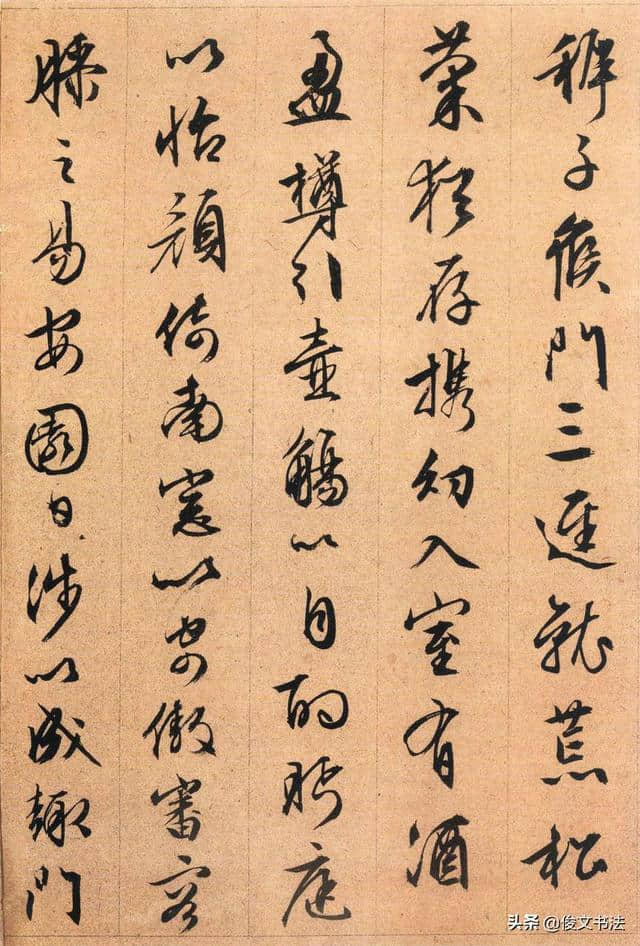 稺子候門三逕就荒松
菊猶存携幼入室有酒
盈樽引壺觴以自酌眄庭
以怡顔倚南窓以寄傲審容
膝之易安園日涉以成趣門
头条 @俊文书法